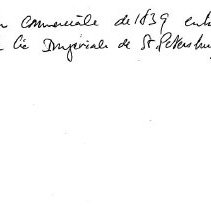 commerciale de 1839
Cie Impériale de St. Petersbu